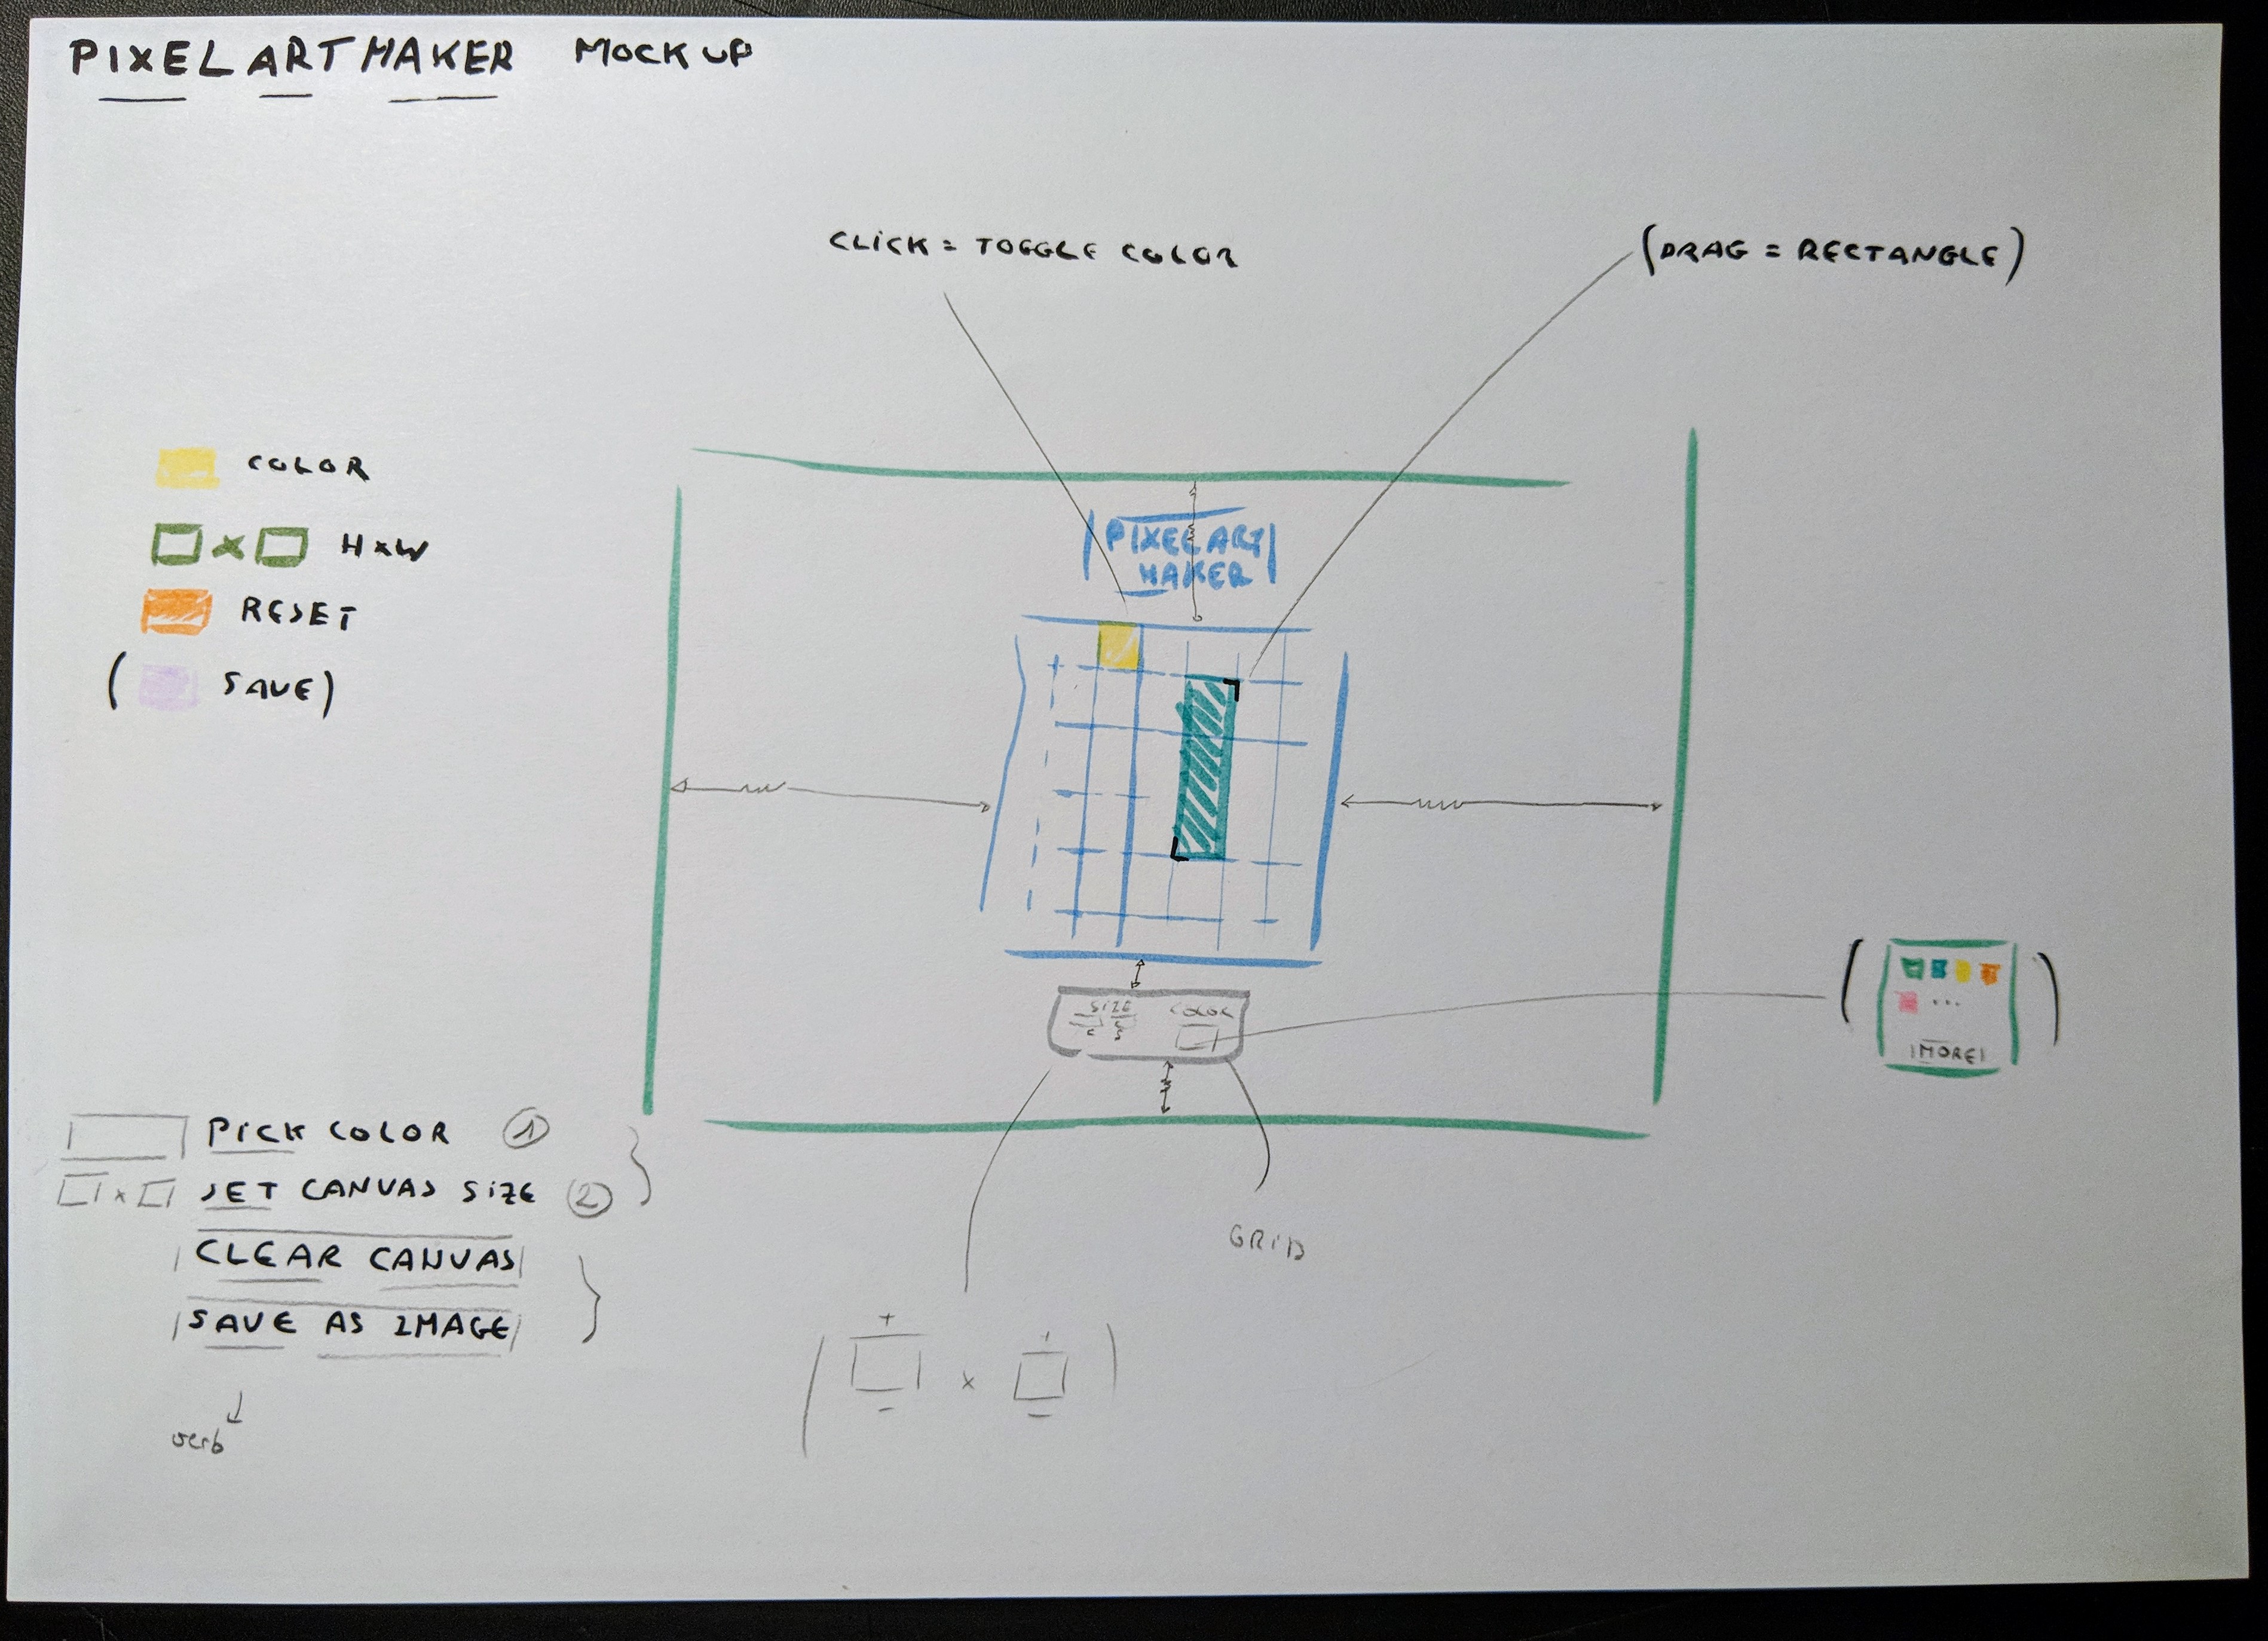 PIXEL ART MAKER MOCK UP
CLICK = TOGGLE COLOR
(DRAG = RECTANGLE)
COLOR
H x W
RESET
( SAVE)
PIXEL ART
MAKER
SIZE COLOR
MORE
...
PICK COLOR 1
x SET CANVAS SIZE 2
CLEAR CANVAS
SAVE AS IMAGE
verb
GRID
+ +
( x )
- -